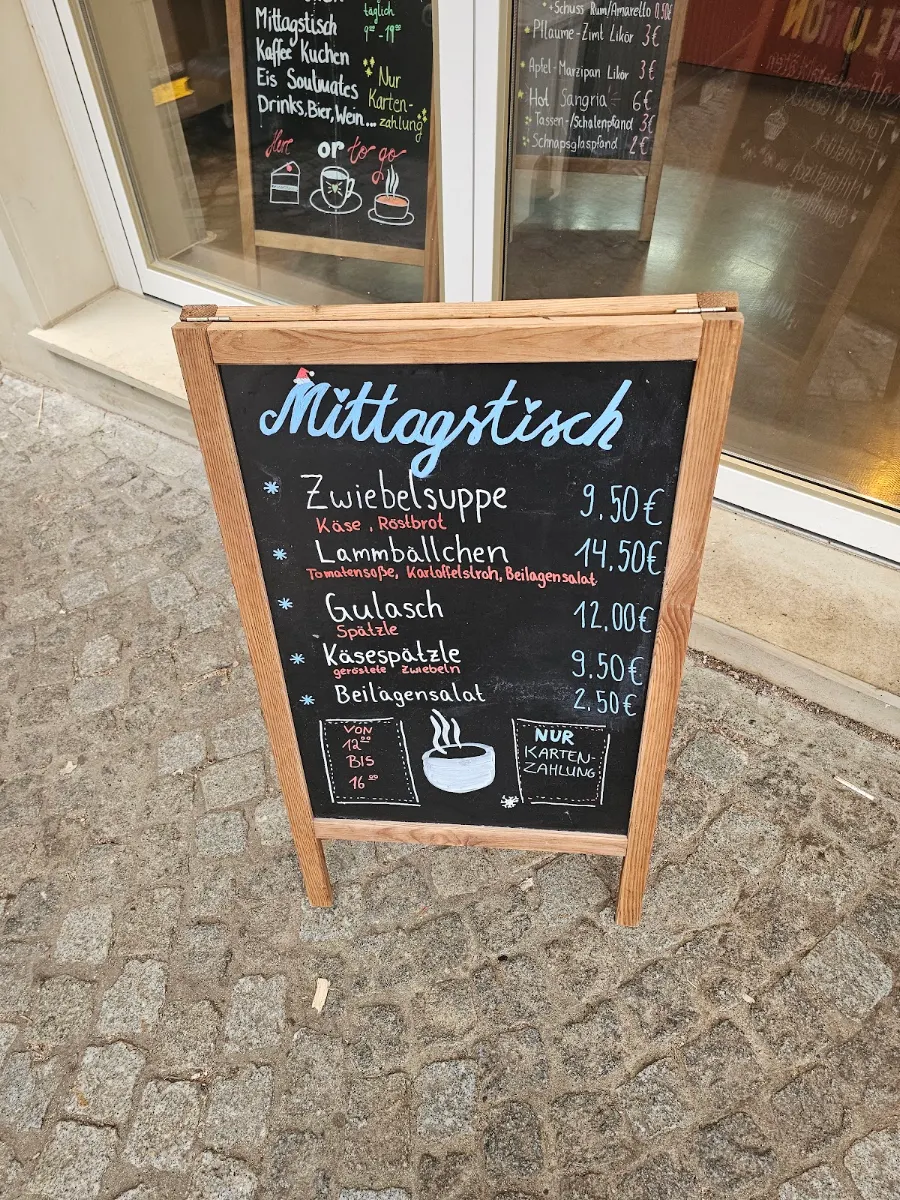 Mittagstisch
Kaffee Kuchen
Eis Soulmates
Drinks, Bier, Wein...
täglich
9⁰⁰ - 19⁰⁰
Nur
Karten-
zahlung
Here or to go
+ Schuss Rum/Amaretto 0.50€
Pflaume-Zimt Likör 3€
Apfel-Marzipan Likör 3€
Hot Sangria 6€
Tassen-/Schalenpfand 3€
Schnapsglaspfand 2€
Mittagstisch
Zwiebelsuppe 9.50€
Käse, Röstbrot
Lammbällchen 14.50€
Tomatensoße, Kartoffelstroh, Beilagensalat
Gulasch 12.00€
Spätzle
Käsespätzle 9.50€
geröstete Zwiebeln
Beilagensalat 2.50€
VON
12⁰⁰
BIS
16⁰⁰
NUR
KARTEN-
ZAHLUNG